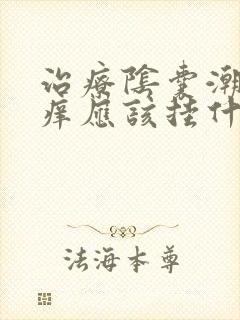 治療陰囊潮
癢應該挂什
法海本尊